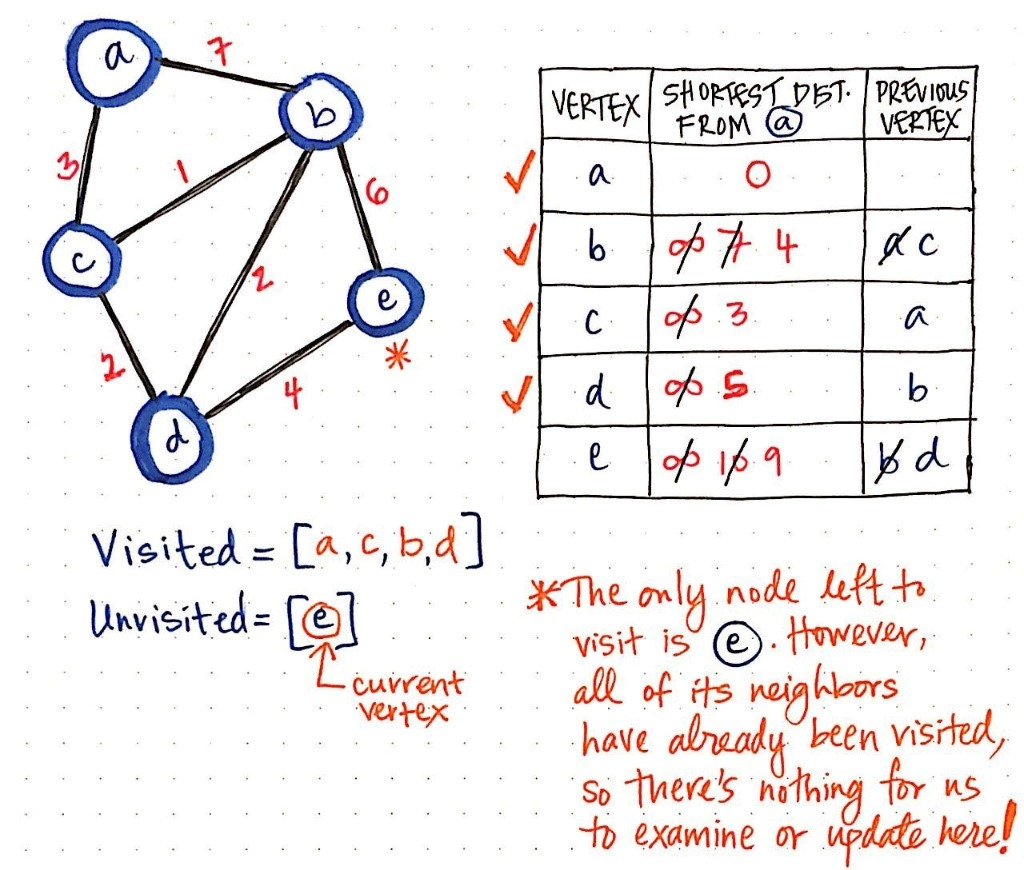 a
7
b
3
1
6
c
2
e
*
2
4
d
VERTEX SHORTEST DIST. FROM a PREVIOUS VERTEX
✓ a 0
✓ b ∞ 7 4 a c
✓ c ∞ 3 a
✓ d ∞ 5 b
e ∞ 10 9 b d
Visited = [a, c, b, d]
Unvisited = [e]
current
vertex
* The only node left to
visit is e. However,
all of its neighbors
have already been visited,
so there's nothing for us
to examine or update here!